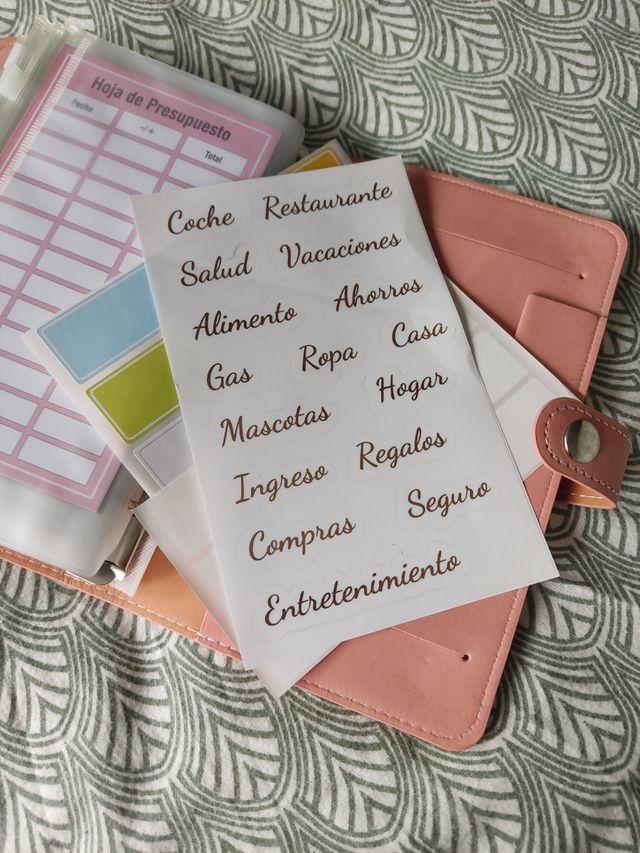 Hoja de Presupuesto
Fecha -/+ Total
Coche Restaurante
Salud Vacaciones
Alimento Ahorros
Gas Ropa Casa
Mascotas Hogar
Ingreso Regalos
Compras Seguro
Entretenimiento